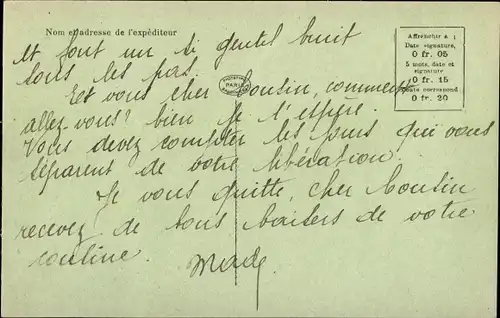 Nom et adresse de l'expéditeur
et font un si gentil bruit
sous les pas.
Et vous cher cousin, comment
allez-vous? bien je l'espère.
Vous devez compter les jours qui vous
séparent de votre libération.
Je vous quitte, cher cousin
recevez de bons baisers de votre
cousine.
Mady
PARIS
Affranchir à :
Date signature,
0 fr. 05
5 mots, date et
signature
0 fr. 15
Toute correspond.
0 fr. 20